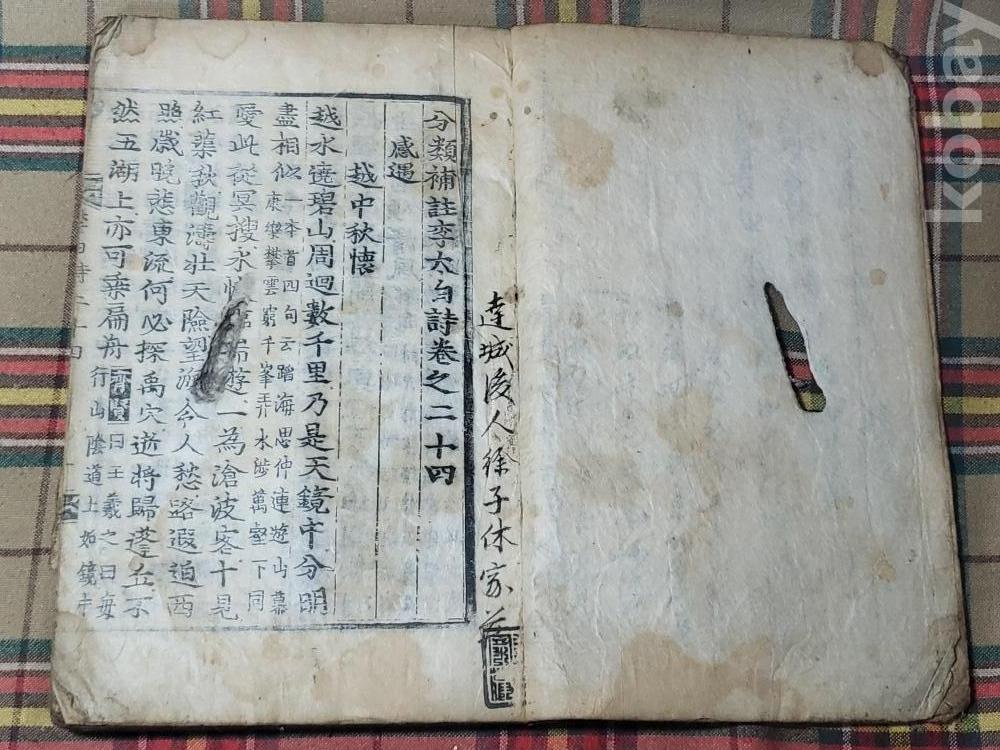 達城後人徐子休家
分類補註李太白詩卷之二十四
感遇
越中秋懷
越水遶碧山周迴數千里乃是天鏡中分明
盡相似一本首四句云蹈海思仲連遊山慕
康樂攀雲窮千峯弄水涉萬壑下同
愛此從冥搜永遊一為滄波客十見
紅蕖秋觀濤壯天險望海令人愁路遐迫西
照歲晚悲東流何必探禹穴逝將歸蓬丘不
然五湖上亦可乗扁舟齊賢曰王羲之曰每
行山陰道上如鏡中
kobay